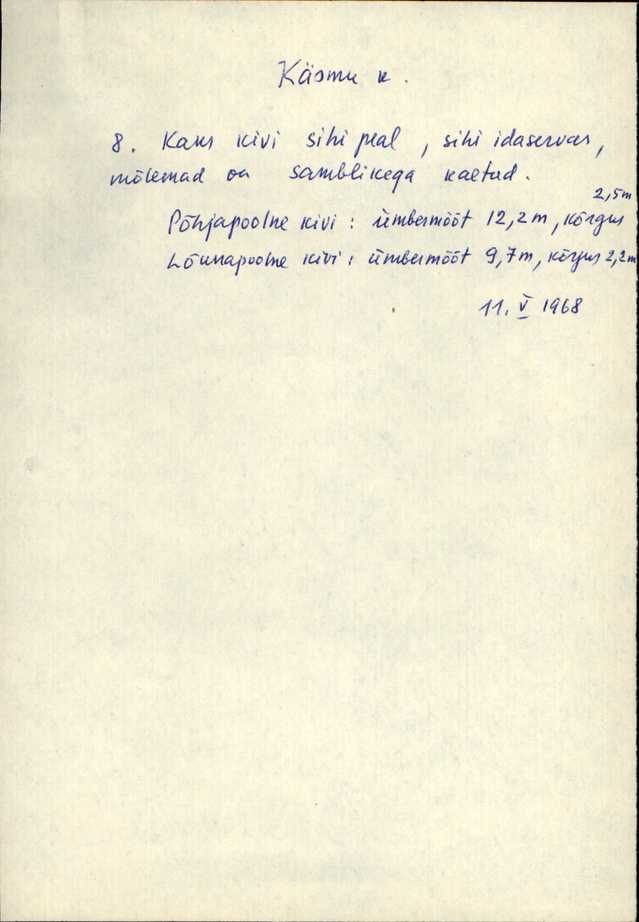 Käsmu k.
8. Kaks kivi sihi peal, sihi idaservas,
mõlemad on samblikega kaetud.
2,5m
Põhjapoolne kivi: ümbermõõt 12,2m, kõrgus
Lõunapoolne kivi: ümbermõõt 9,7m, kõrgus 2,2m
11. V 1968